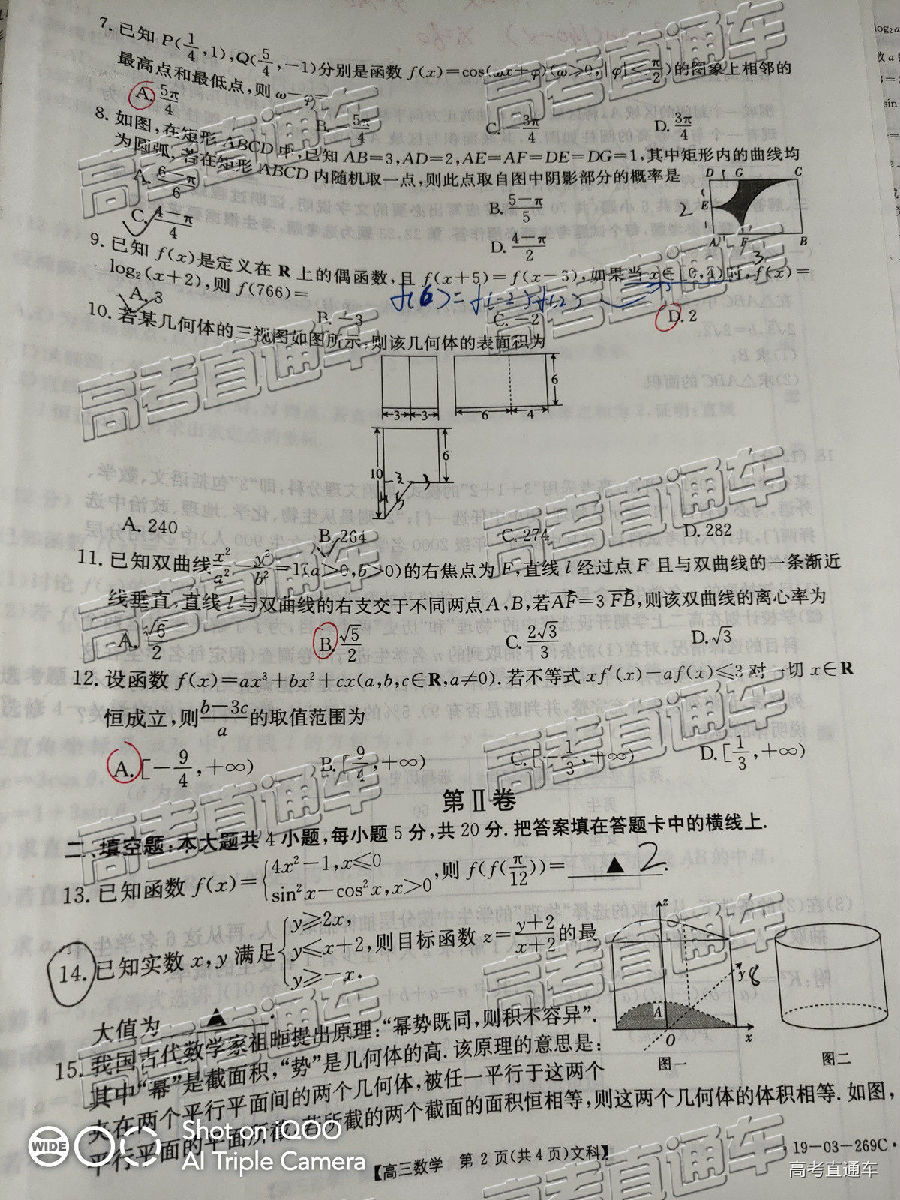 7. 已知 P(1/4, 1), Q(5/4, -1)分别是函数 f(x)=cos(ωx+φ)(ω>0, |φ|≤π/2)的图象上相邻的
最高点和最低点,则 ω-φ=
A. 5π/4 B. -5π/4 C. -3π/4 D. 3π/4
8. 如图,在矩形 ABCD 中,已知 AB=3,AD=2,AE=AF=DE=DG=1,其中矩形内的曲线均
为圆弧. 若在矩形 ABCD 内随机取一点,则此点取自图中阴影部分的概率是
A. (6-π)/6 B. (5-π)/5
C. (4-π)/4 D. (4-π)/2
D G C
A F B
2
3
9. 已知 f(x)是定义在 R 上的偶函数,且 f(x+5)=f(x-3),如果当 x∈[0,4)时,f(x)=
log₂(x+2),则 f(766)=
A. 3 B. -3 C. -2 D. 2
f(6)=f(-2)=f(2)
10. 若某几何体的三视图如图所示,则该几何体的表面积为
3 3 6 4 6
10 6
A. 240 B. 264 C. 274 D. 282
11. 已知双曲线 x²/a² - y²/b² =1(a>0,b>0)的右焦点为 F,直线 l 经过点 F 且与双曲线的一条渐近
线垂直,直线 l 与双曲线的右支交于不同两点 A,B,若AF=3FB,则该双曲线的离心率为
A. √6/2 B. √5/2 C. 2√3/3 D. √3
12. 设函数 f(x)=ax³+bx²+cx(a,b,c∈R,a≠0). 若不等式 xf′(x)-af(x)≤3 对一切 x∈R
恒成立,则(b-3c)/a的取值范围为
A. [-9/4,+∞) B. [9/4,+∞) C. [-1/3,+∞) D. [1/3,+∞)
第Ⅱ卷
二、填空题:本大题共 4 小题,每小题 5 分,共 20 分. 把答案填在答题卡中的横线上.
13. 已知函数 f(x)={4x²-1,x≤0
sin²x-cos²x,x>0 ,则 f(f(π/12))= ▲ 2.
14. 已知实数 x,y 满足{y≥2x,
y≤x+2,
y≥-x. 则目标函数 z=(y+2)/(x+2) 的最
大值为 ▲ .
15. 我国古代数学家祖暅提出原理:“幂势既同,则积不容异”.
其中“幂”是截面积,“势”是几何体的高. 该原理的意思是:
夹在两个平行平面间的两个几何体,被任一平行于这两个
平行平面的平面所截,若所截的两个截面的面积恒相等,则这两个几何体的体积相等. 如图,
z y 8
A O x
图一 图二
【高三数学 第 2 页(共 4 页)文科】
19-03-269C·
WIDE
Shot on iQOO
AI Triple Camera
高考直通车
高考直通车
高考直通车
高考直通车
高考直通车
高考直通车
高考直通车
高考直通车
高考直通车